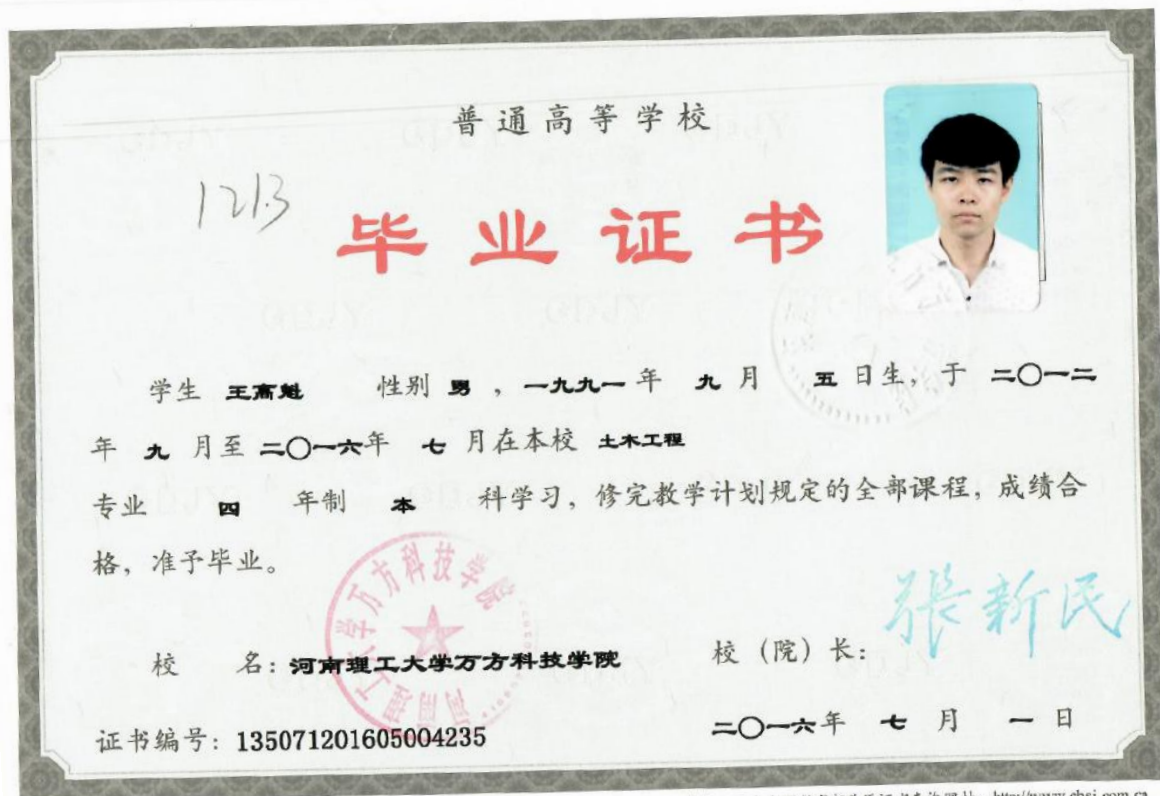 普通高等学校
1213
毕业证书
学生 王高魁 性别 男 ，一九九一 年 九 月 五 日生，于 二〇一二
年 九 月至 二〇一六年 七 月在本校 土木工程
专业 四 年制 本 科学习，修完教学计划规定的全部课程，成绩合
格，准予毕业。
河南理工大学万方科技学院
校 名：河南理工大学万方科技学院
校（院）长：張新民
证书编号：135071201605004235
二〇一六年 七 月 一 日
http://www.chsi.com.cn